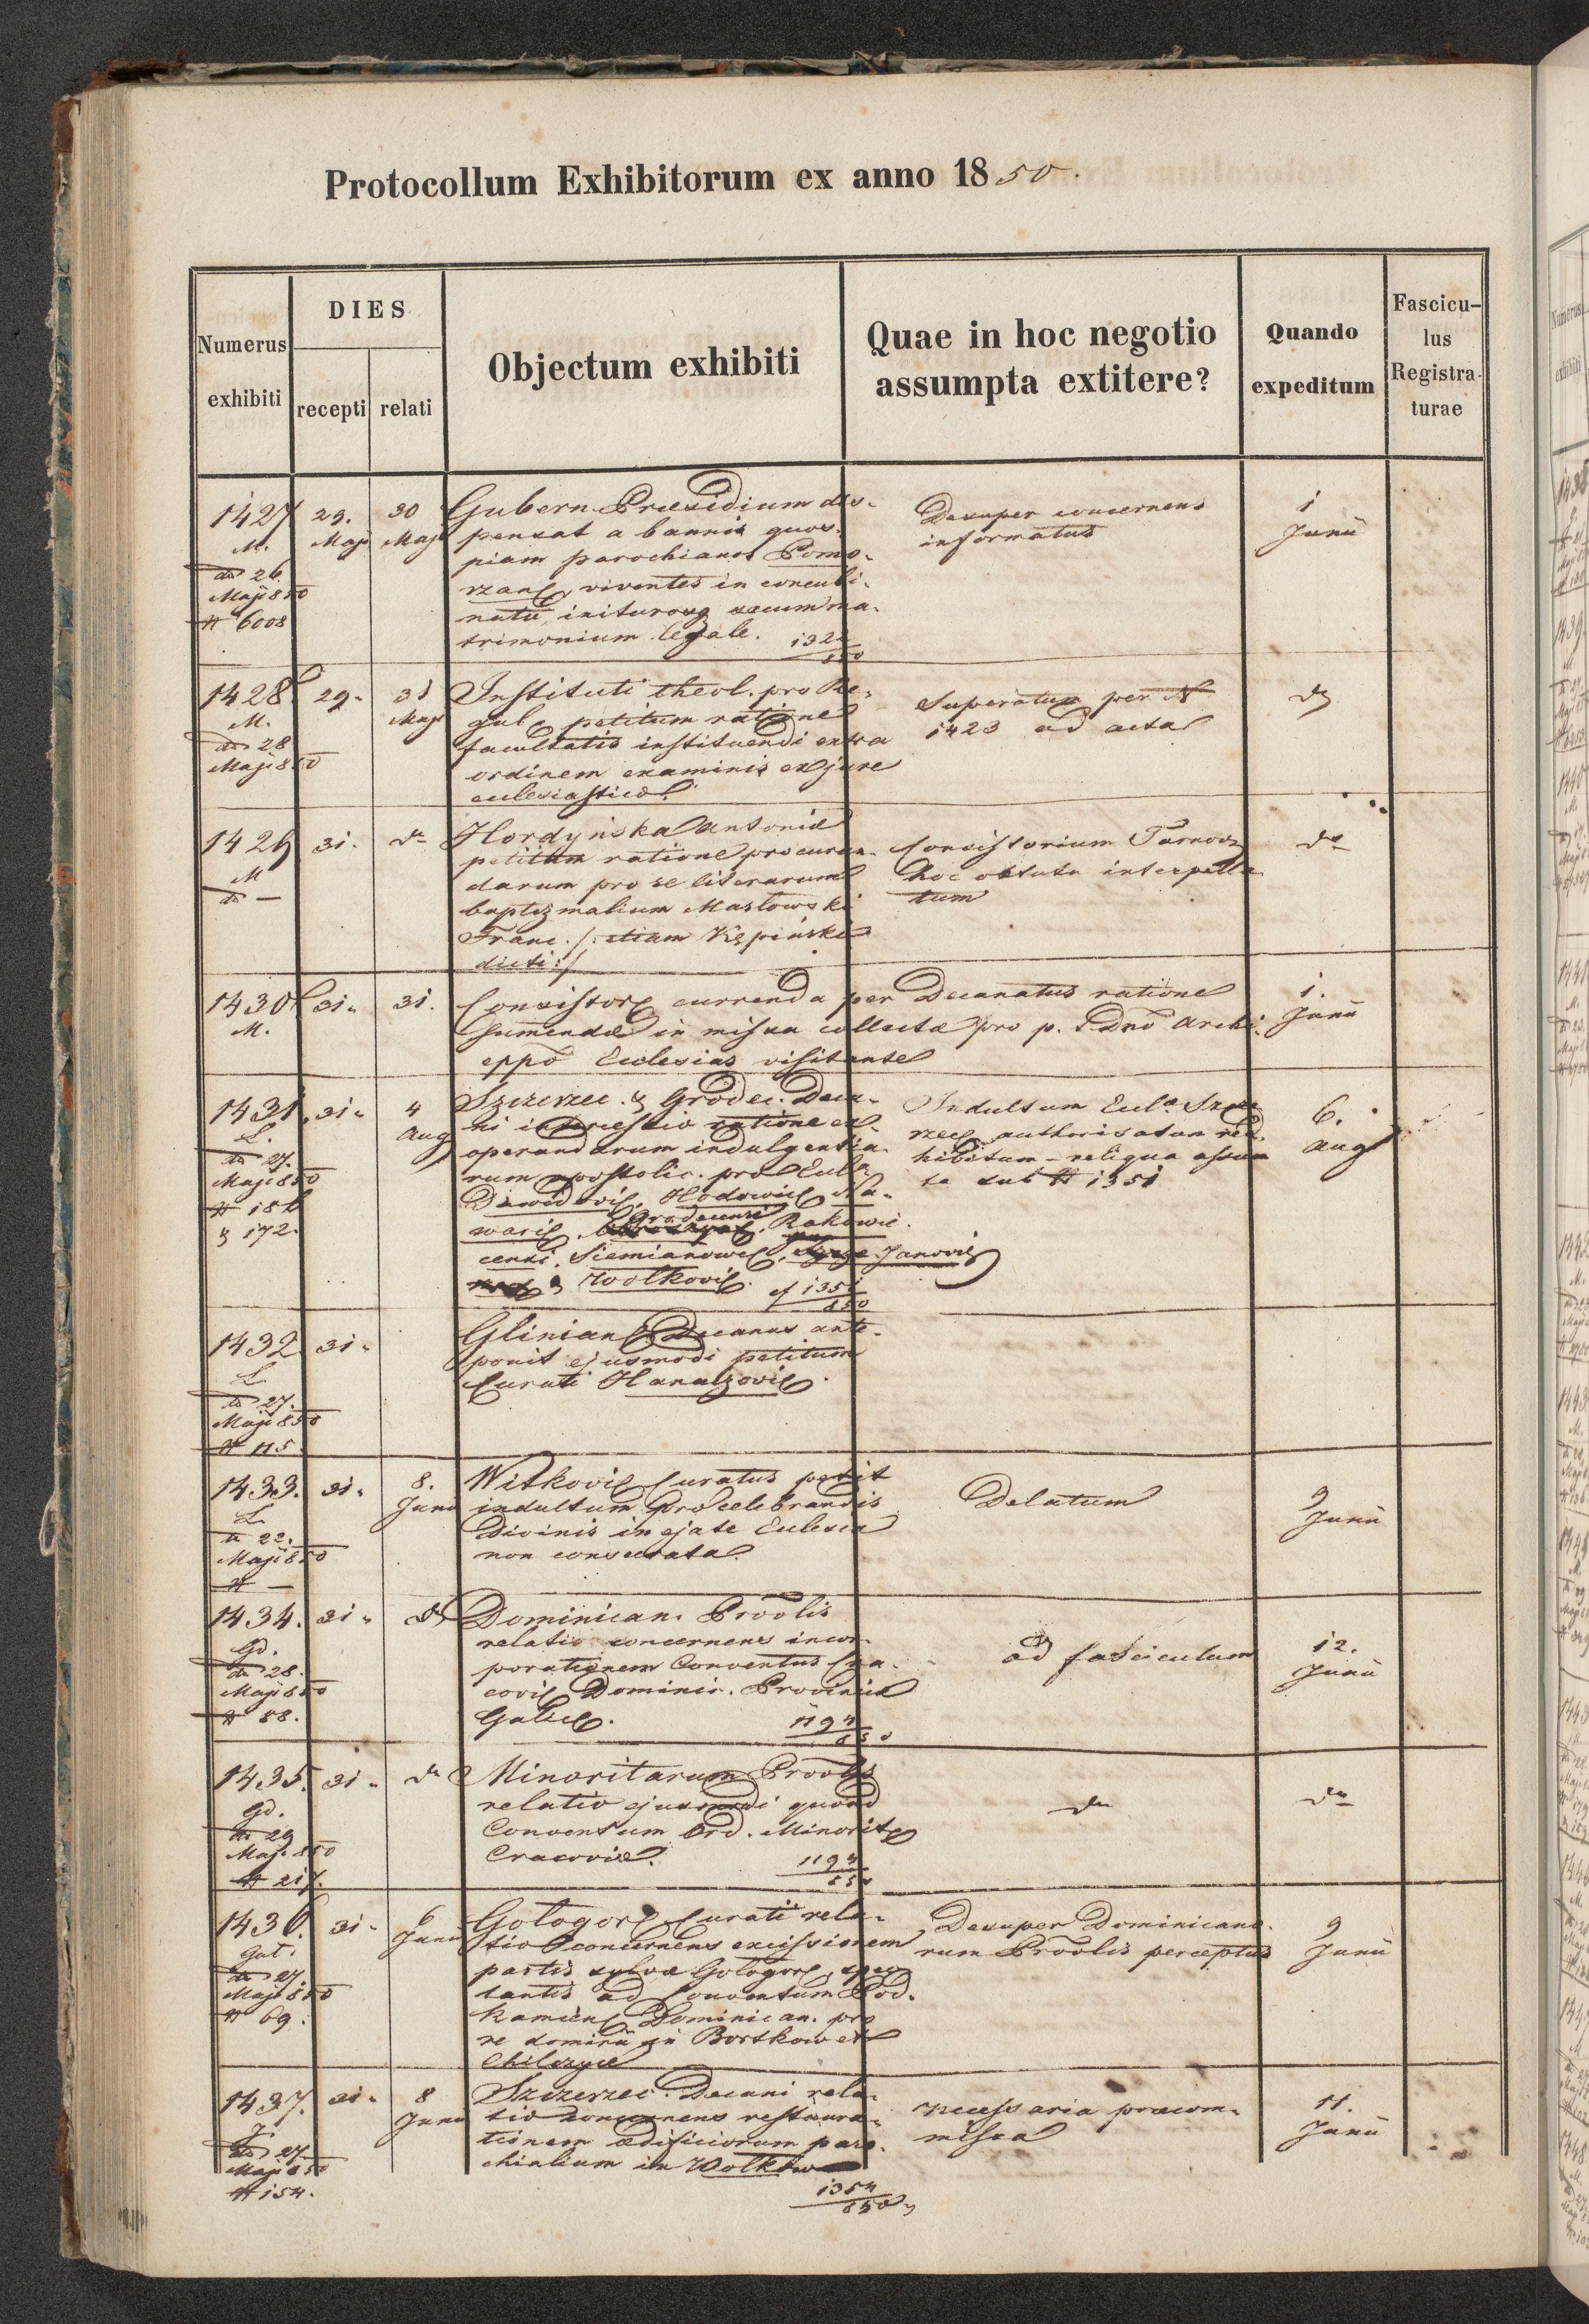 Protocollum Exhibitorum ex anno 1850.
Numerus exhibiti
DIES
recepti relati
Objectum exhibiti
Quae in hoc negotio assumpta extitere?
Quando expeditum
Fascicu-
lus
Registra-
turae
1427
M.
do 26
Maji 850
N 6008
29.
Maji
30
Maji
Gubern. Præsidium dis-
pensat a bannis quos-
piam parochianos Pomo-
rzan, viventes in concubi-
natu, inituros secum ma-
trimonium legale.
Desuper concernens
informatus
1
Junii
1428
M.
do 28
Maji 850
29.
31
Maji
Instituti theol. pro Re-
gul. petitum ratione
facultatis instituendi extra
ordinem examinis ex jure
ecclesiastico.
Superatur per N
1423 ad acta
do
1429
M
do —
31.
do
Hordyńska Antonia
petitum ratione procuran-
darum pro se literarum
baptizmalium Masłowski
Franc. /: etiam Kępiński
dicti :/
Consistorium Tarnov.
hoc obtutu interpella-
tum
do
1430
M.
31.
31.
Consistor. currenda per Decanatus ratione
sumendæ in missa collectæ pro p. Dno Archi-
eppo Ecclesias visitante
1.
Junii
1431.
L.
do 27.
Maji 850
N 186
& 172.
31.
4
Aug
Szczerzec. & Grodec. Deca-
ni intercessio ratione ex-
operandarum indulgentia-
rum apostolic. pro Eccla
Dawidovi, Hodowic, Na-
warie, Grodecensi, Rakowie-
censi, Siemianowe, Janovi
& Wolkovi. cf 1351
850
Indultum Eccla Szcze-
rzec authorisatum red-
hibitum - reliqua assum-
ta sub N 1351
6.
Aug
1432
L
do 27.
Maji 850
N 115.
31.
Glinian. Decanus ante-
ponit ejusmodi petitum
Curati Hanaczovi.
1433.
L.
do 22.
Maji 850
N —
31.
8.
Junii
Witkovi Curatus petit
indultum pro celebrandis
Divinis in ejate Ecclesia
non consecrata.
Delatum
9
Junii
1434.
Gd.
do 28.
Maji 850
N 88.
31.
do
Dominican. Provlis
relatio concernens incor-
porationem Conventus Cra-
covi Dominic. Provincia
Galic.
1194
850
ad fasciculum
12.
Junii
1435.
Gd.
do 29
Maji 850
N 217.
31.
do
Minoritarum Provlis
relatio ejusmodi quoad
Conventum Ord. Minorit
Cracoviæ.
1194
850
do
do
1436.
Gal.
do 27.
Maji 850
N 69.
31.
6
Junii
Gologor. Curati rela-
tio concernens excissionem
partis sylvæ Gologor, spec-
tantis ad Conventum Pod-
kamien Dominican. pro
re dominii in Bortkow et
Chilczyce
Desuper Dominicano-
rum Provlis perceptus
9
Junii
1437.
J.
do 27.
Maji 850
N 154.
31.
8
Junii
Szczerzec. Decani rela-
tio concernens restaura-
tionem ædificiorum paro-
chialium in Wolkow
1354
850
necessaria præcom-
missa
11.
Junii